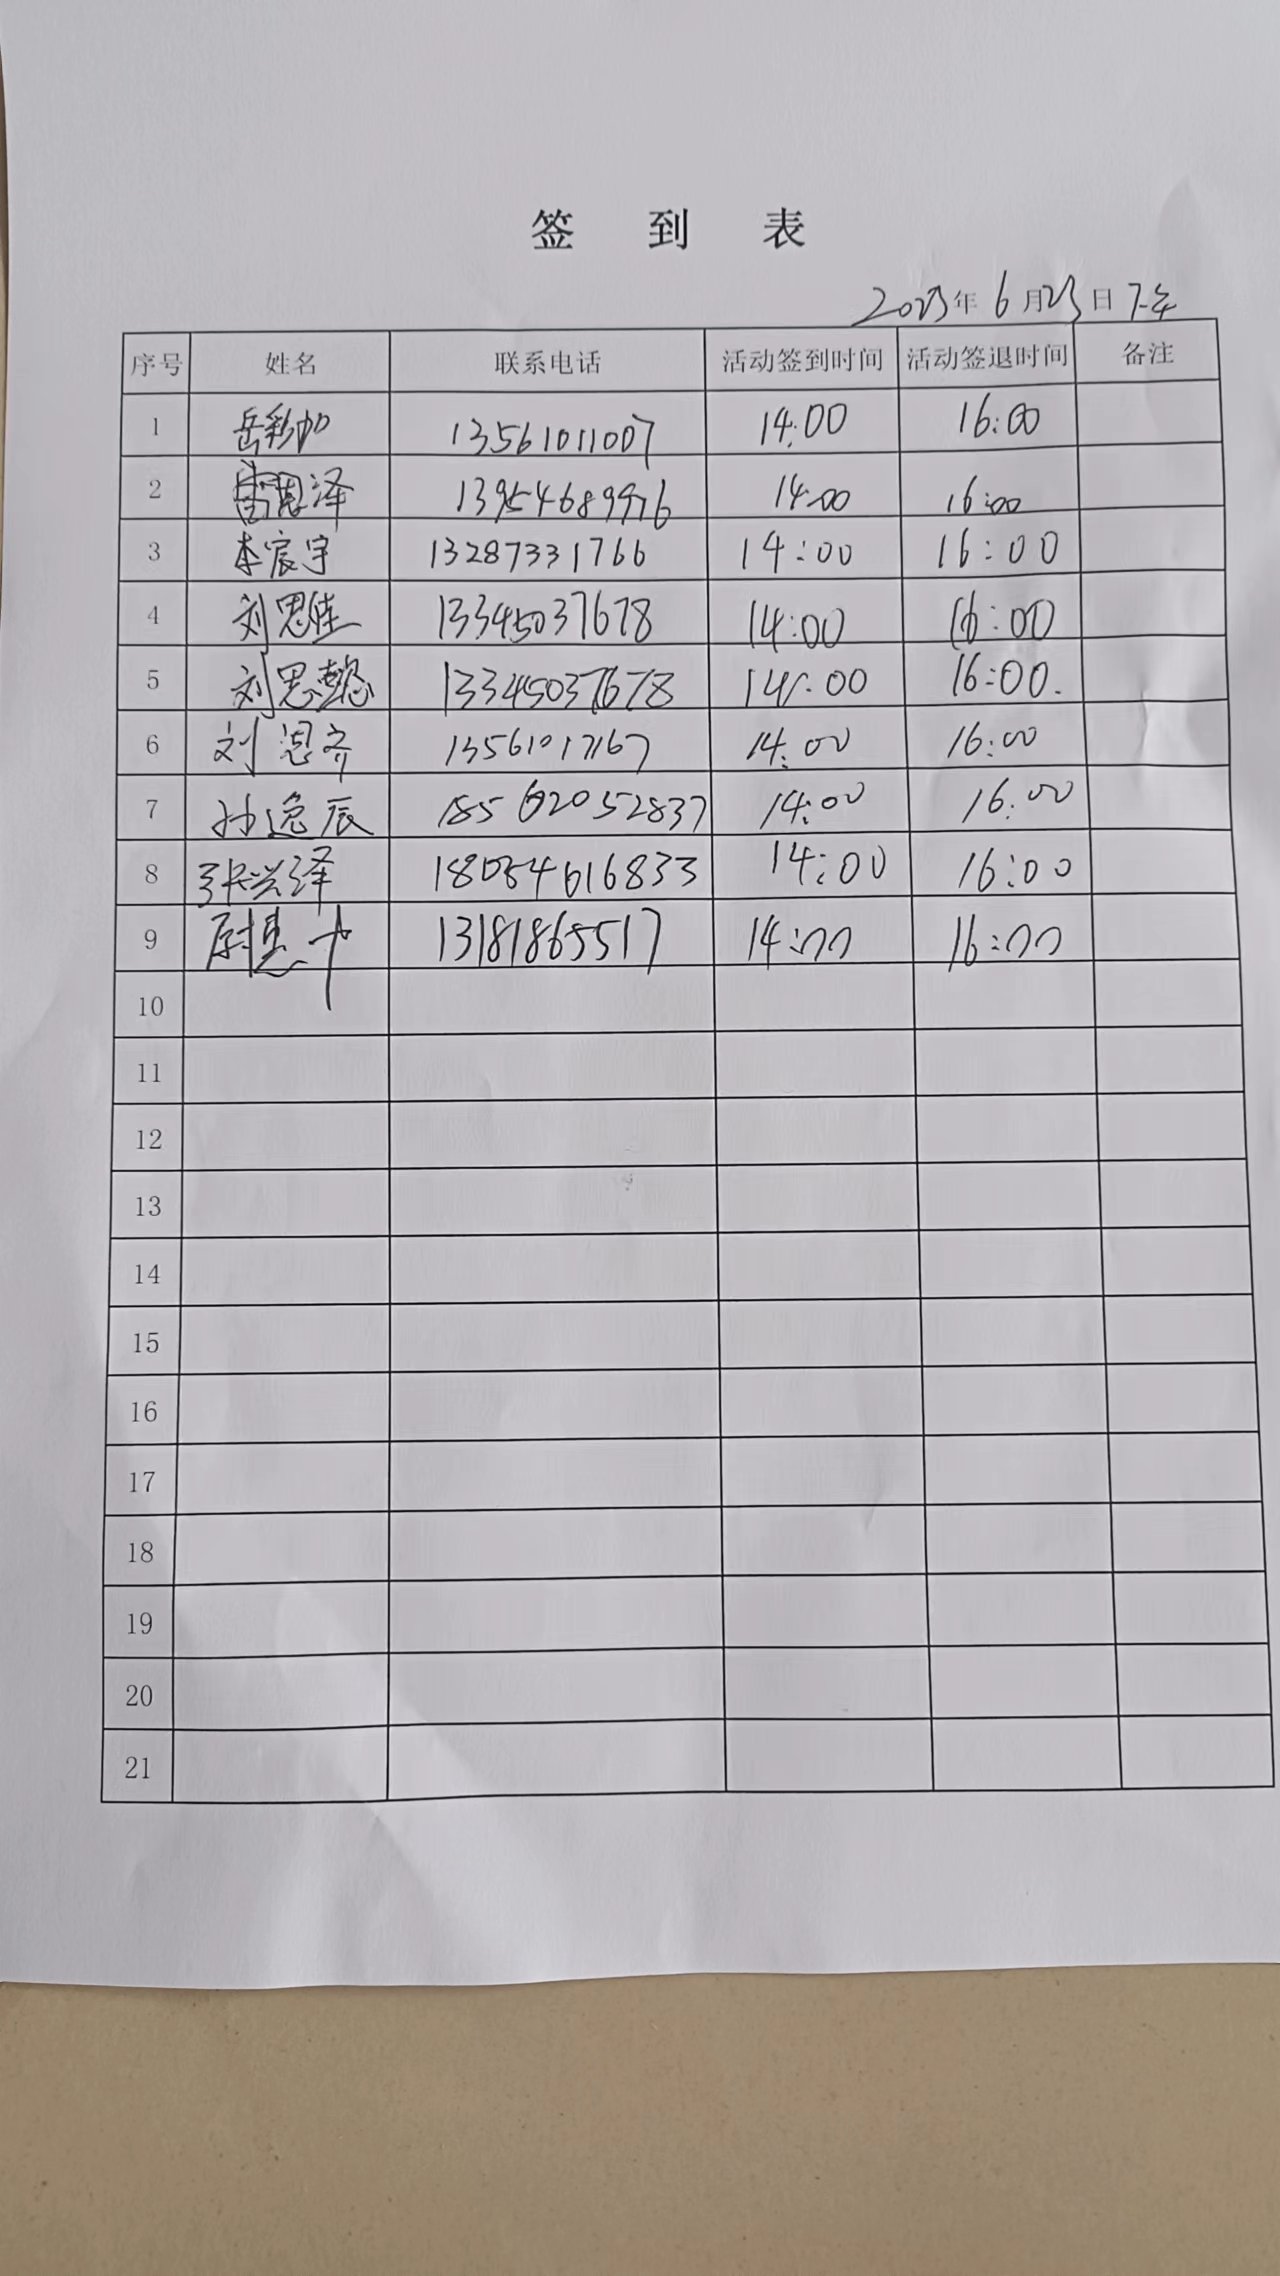 签 到 表
2023年 6月23日 下午
序号 姓名 联系电话 活动签到时间 活动签退时间 备注
1 岳彩加 13561011007 14:00 16:00
2 泽 13954689976 14:00 16:00
3 李宸宇 13287331766 14:00 16:00
4 刘思佳 13345037678 14:00 16:00
5 刘思懿 13345037678 14:00 16:00.
6 刘恩齐 13561017167 14:00 16:00
7 孙逸辰 18562052837 14:00 16:00
8 张兴泽 18054616833 14:00 16:00
9 尉 13181865517 14:00 16:00
10
11
12
13
14
15
16
17
18
19
20
21